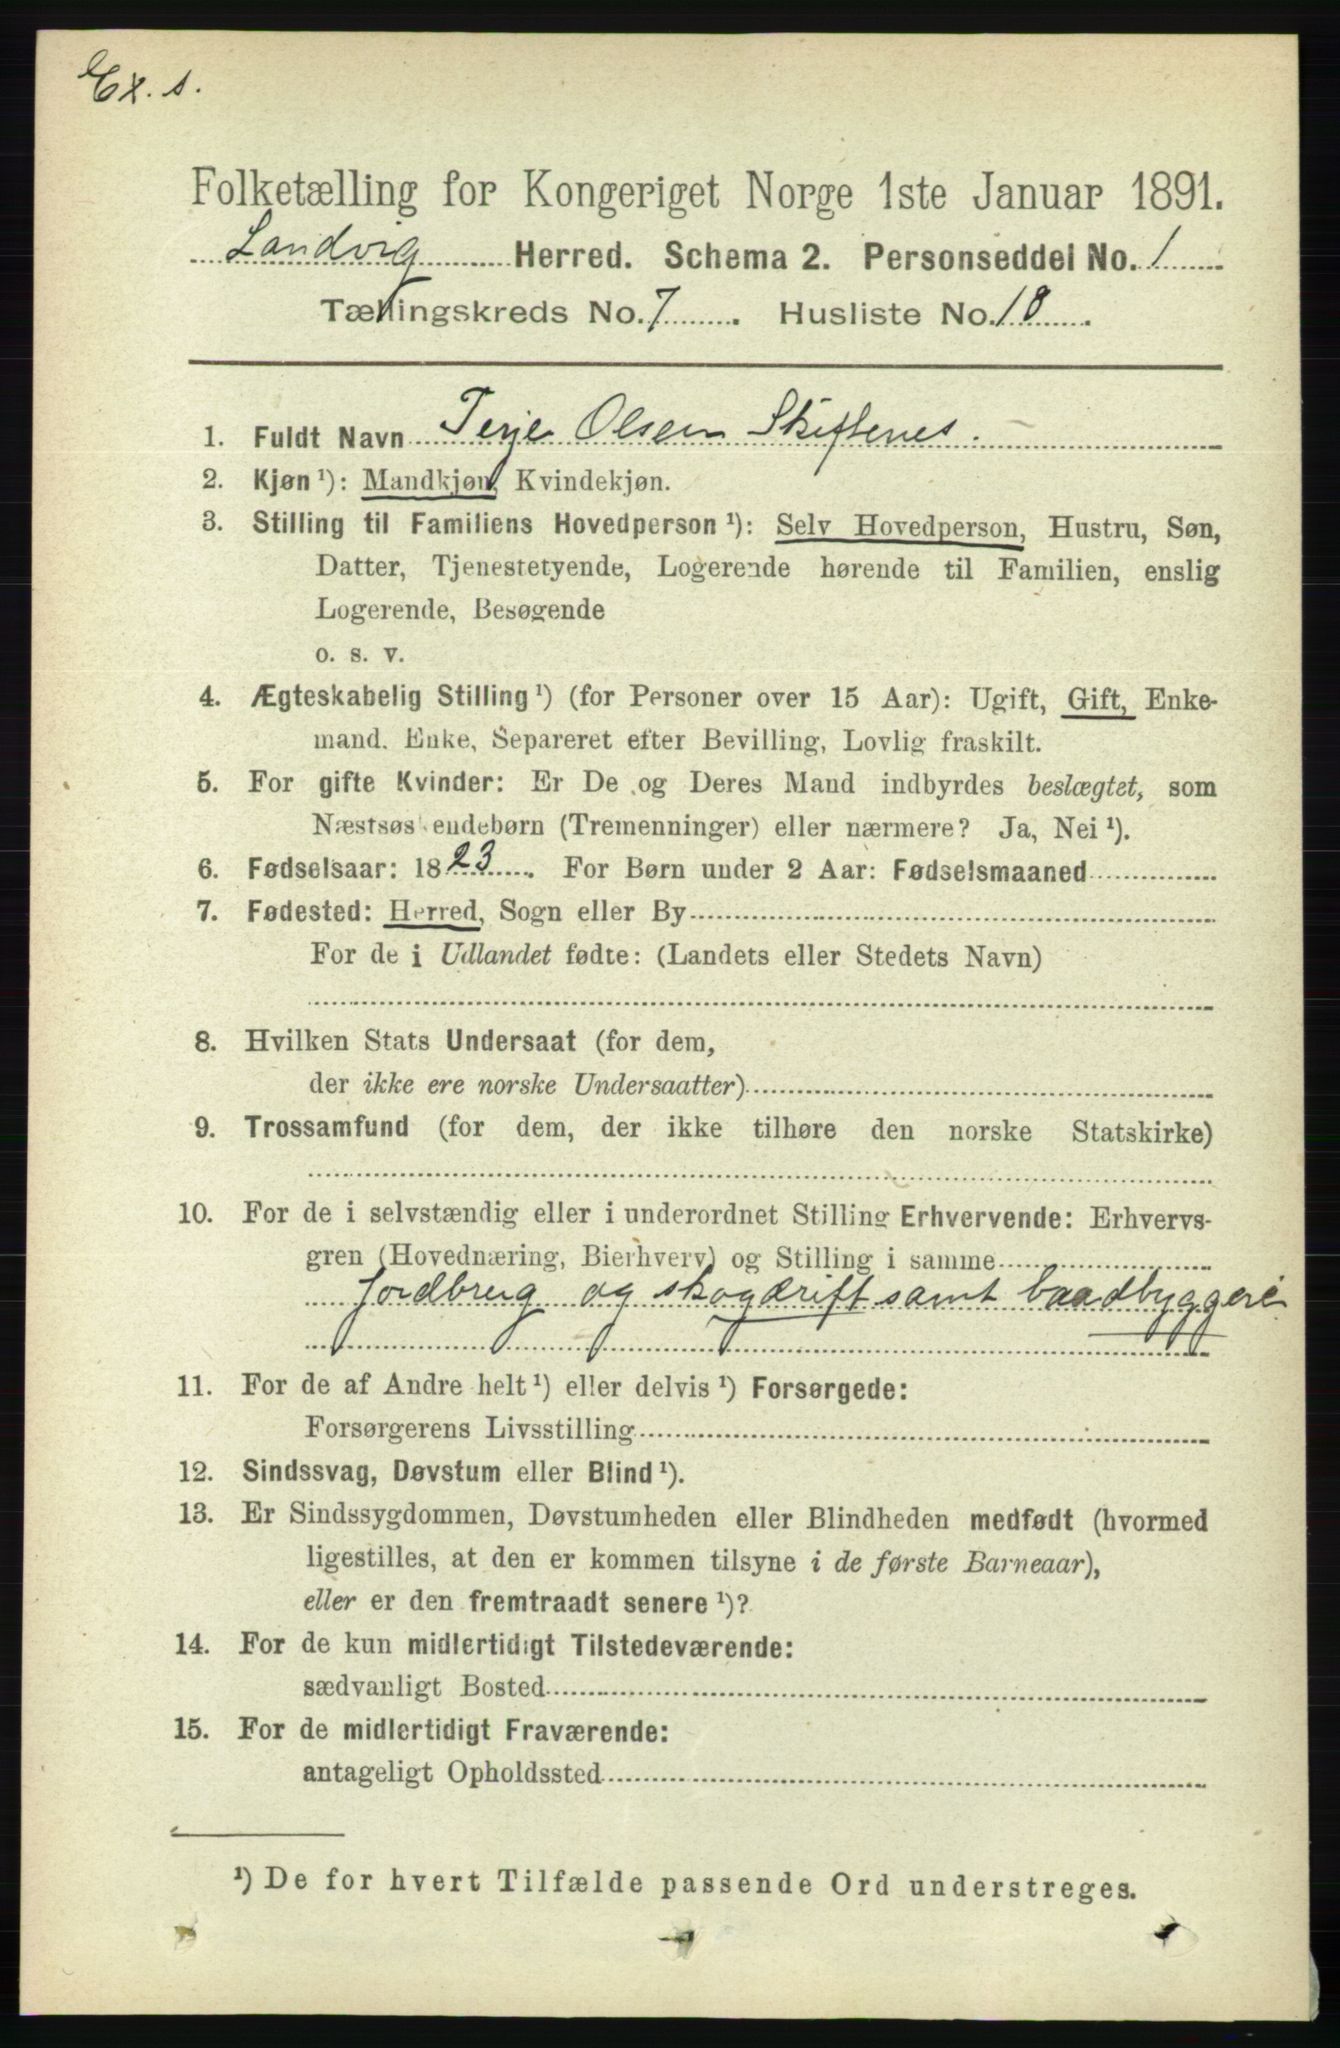 Ex. s.
Folketælling for Kongeriget Norge 1ste Januar 1891.
Landvig Herred. Schema 2. Personseddel No. 1
Tællingskreds No. 7. Husliste No. 18.
1. Fuldt Navn Terje Olsen Skiftenes.
2. Kjøn ¹): Mandkjøn, Kvindekjøn.
3. Stilling til Familiens Hovedperson ¹): Selv Hovedperson, Hustru, Søn,
Datter, Tjenestetyende, Logerende hørende til Familien, enslig
Logerende, Besøgende
o. s. v.
4. Ægteskabelig Stilling ¹) (for Personer over 15 Aar): Ugift, Gift, Enke-
mand, Enke, Separeret efter Bevilling, Lovlig fraskilt.
5. For gifte Kvinder: Er De og Deres Mand indbyrdes beslægtet, som
Næstsøskendebørn (Tremenninger) eller nærmere? Ja, Nei ¹).
6. Fødselsaar: 1823. For Børn under 2 Aar: Fødselsmaaned
7. Fødested: Herred, Sogn eller By
For de i Udlandet fødte: (Landets eller Stedets Navn)
8. Hvilken Stats Undersaat (for dem,
der ikke ere norske Undersaatter)
9. Trossamfund (for dem, der ikke tilhøre den norske Statskirke)
10. For de i selvstændig eller i underordnet Stilling Erhvervende: Erhvervs-
gren (Hovednæring, Bierhverv) og Stilling i samme
Jordbrug og skogdrift samt baadbyggeri
11. For de af Andre helt ¹) eller delvis ¹) Forsørgede:
Forsørgerens Livsstilling
12. Sindssvag, Døvstum eller Blind ¹).
13. Er Sindssygdommen, Døvstumheden eller Blindheden medfødt (hvormed
ligestilles, at den er kommen tilsyne i de første Barneaar),
eller er den fremtraadt senere ¹)?
14. For de kun midlertidigt Tilstedeværende:
sædvanligt Bosted
15. For de midlertidigt Fraværende:
antageligt Opholdssted
¹) De for hvert Tilfælde passende Ord understreges.